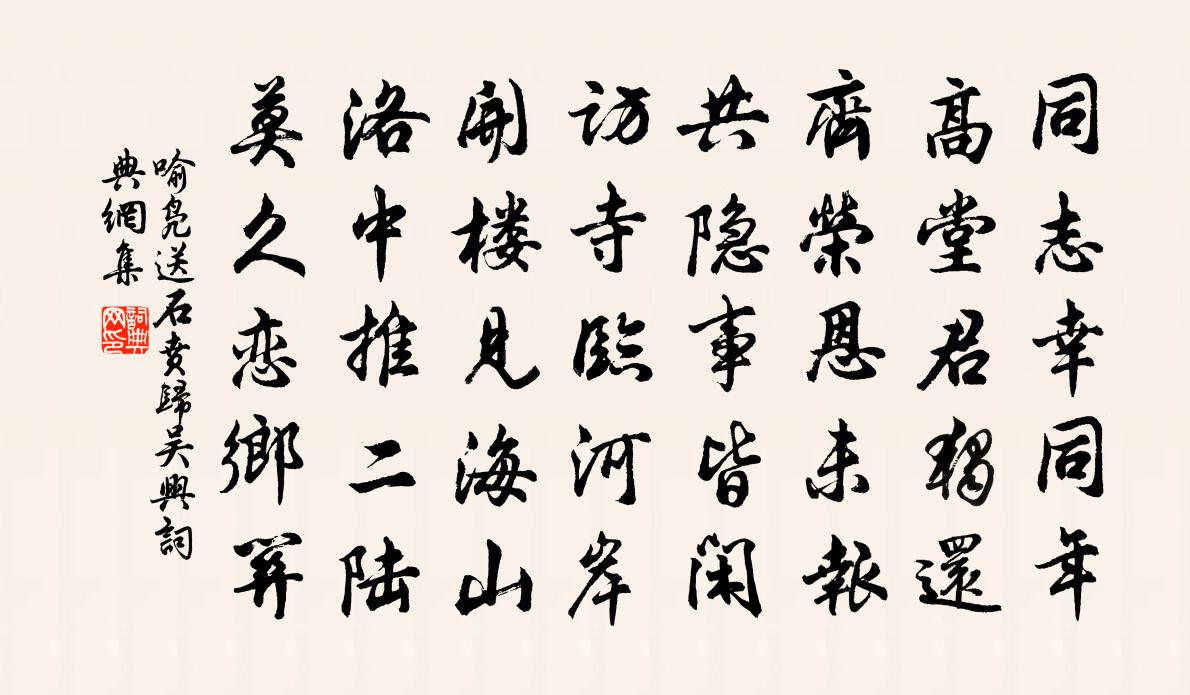 同志幸同年
高堂君獨還
齊榮恩未報
共隐事皆閑
訪寺臨河岸
開楼見海山
洛中推二陆
莫久恋鄉關
喻鳧送石賁歸吴興詞
典網集
詞典网印